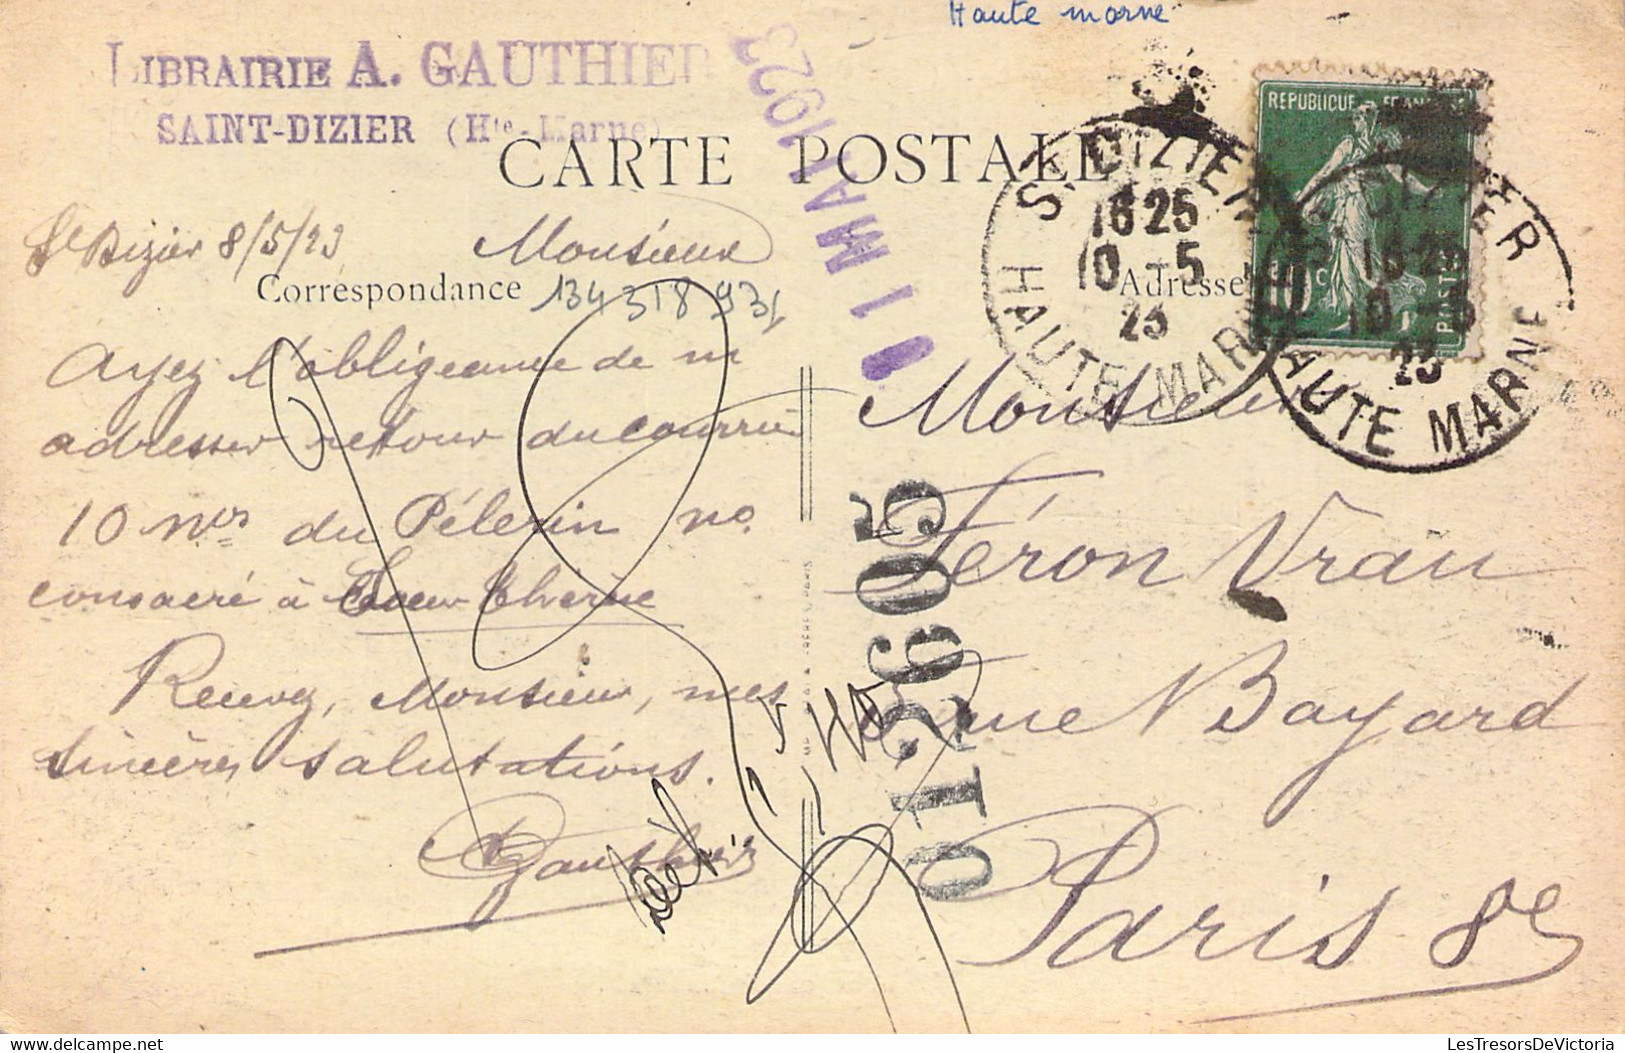 Haute marne
LIBRAIRIE A. GAUTHIER
SAINT-DIZIER (Hte-Marne)
CARTE POSTALE
MAI 1923
St Dizier 8/5/23
Monsieur
Correspondance
134 318 931
Ayez l'obligeance de m
adresser retour du courrier
10 nos du Pélerin no
consacré à Soeur Thérèse
Recevez, Monsieur, mes
sincères salutations.
Gauthier
ST DIZIER
16 25
10 -5
23
HAUTE MARNE
REPUBLIQUE FRANÇAISE
10c
POSTES
ST DIZIER
16 25
10 -5
23
HAUTE MARNE
Adresse
Monsieur
Féron Vrau
5 rue Bayard
Paris 8e
012605
LesTresorsDeVictoria